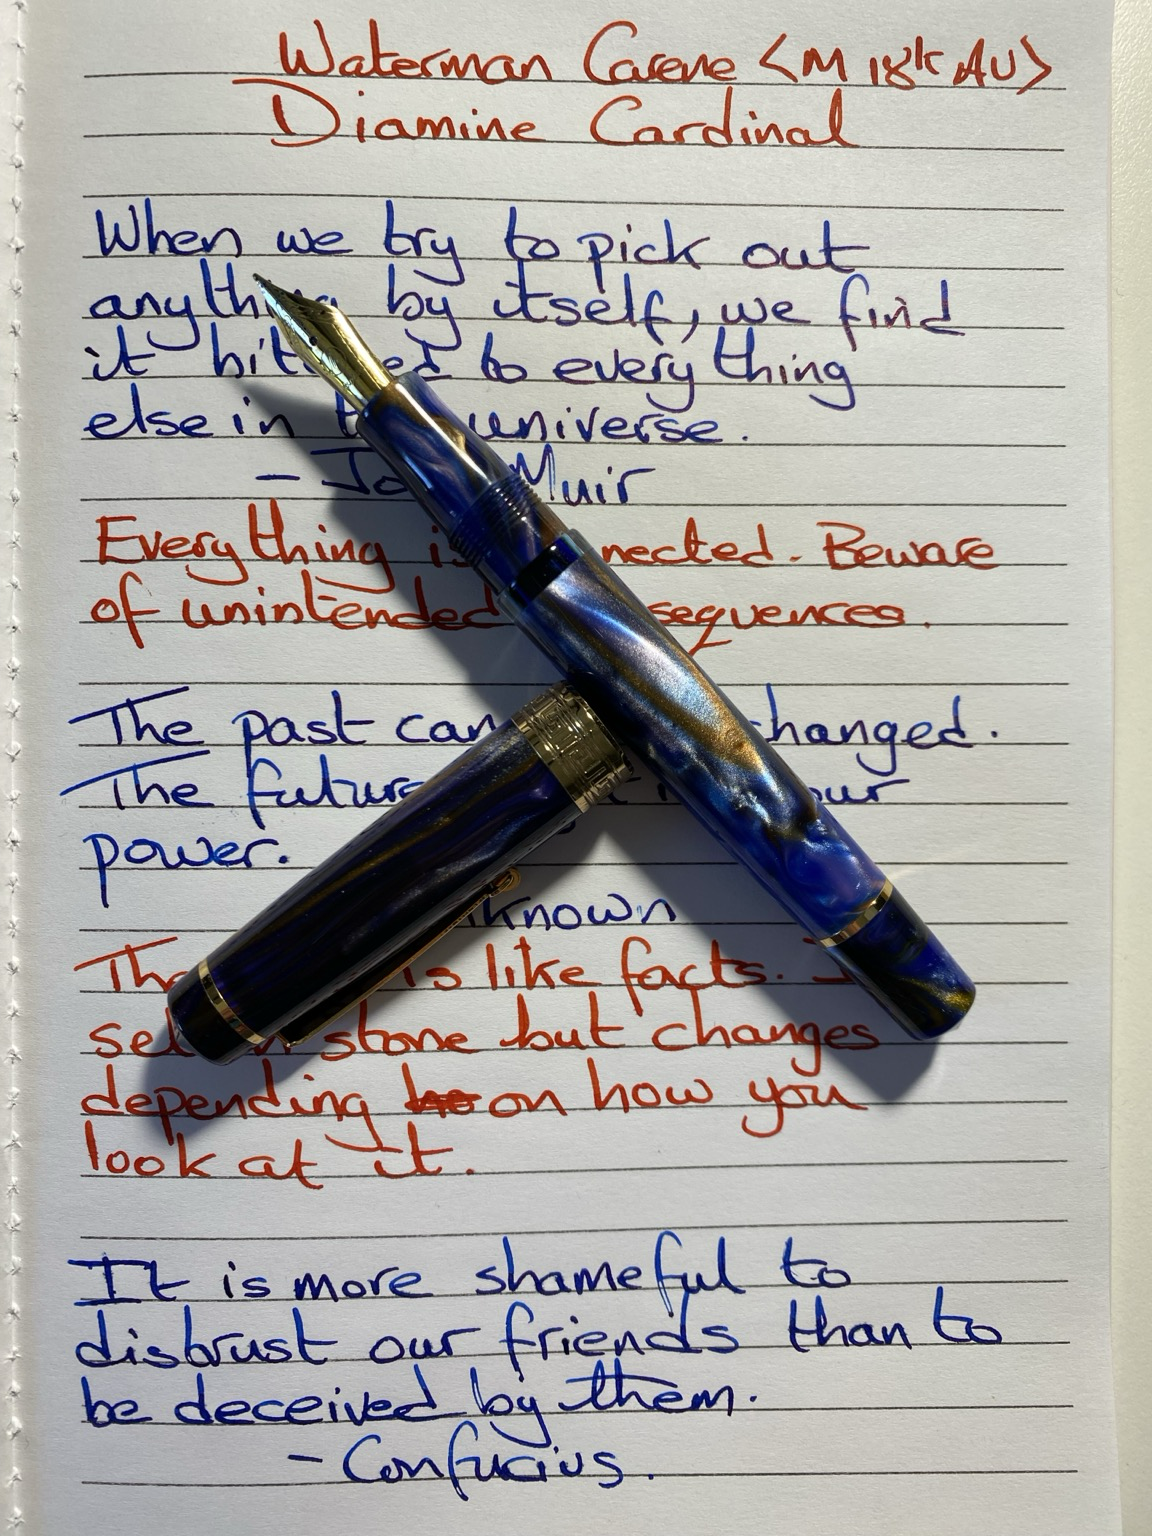 Waterman Carene <M 18k AU>
Diamine Cardinal
When we try to pick out
anything by itself, we find
it hitched to everything
else in the universe.
- John Muir
Everything is connected. Beware
of unintended consequences.
The past cannot be changed.
The future is yet in your
power.
- Unknown
The past is like facts. It is
set in stone but changes
depending on how you
look at it.
It is more shameful to
distrust our friends than to
be deceived by them.
- Confucius.